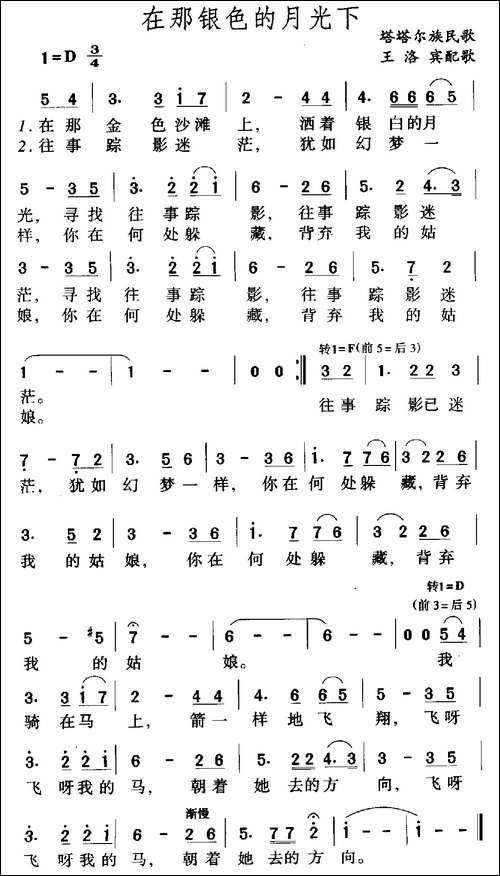 在那银色的月光下
塔塔尔族民歌
1=D 3/4
王洛宾配歌
5 4 | 3. 3 1 7 | 2 - 4 4 | 4. 6 6 6 5 |
1.在那 金 色沙滩 上, 洒着 银 白的月
2.往事 踪 影迷 茫, 犹如 幻 梦一
5 - 3 5 | 3. 2 2 1 | 6 - 2 6 | 5. 5 2 4.3 |
光, 寻找 往 事踪 影, 往事 踪 影迷
样, 你在 何 处躲 藏, 背弃 我 的姑
3 - 3 5 | 3. 2 2 1 | 6 - 2 6 | 5. 7 2 |
茫, 寻找 往 事踪 影, 往事 踪 影迷
娘, 你在 何 处躲 藏, 背弃 我 的姑
转1=F(前5=后3)
1 - - | 1 - - | 0 0 :‖ 3 2 | 1. 2 2 3 |
茫。 往事 踪 影已迷
娘。
7 - 7 2 | 3. 5 6 | 3 - 3 6 | 1. 7 7 6 | 3 2 2 6 |
茫, 犹如 幻 梦一 样, 你在 何 处躲 藏, 背弃
3. 5 2 | 3 - 3 6 | 1. 7 7 6 | 3 2 2 6 |
我 的姑 娘, 你在 何 处躲 藏, 背弃
转1=D
(前3=后5)
5 - #5 | 7 - - | 6 - - | 6 - - | 0 0 5 4 |
我 的姑 娘。 我
3. 3 1 7 | 2 - 4 4 | 4. 6 6 5 | 5 - 3 5 |
骑 在马 上, 箭一 样 地飞 翔, 飞呀
3. 2 2 1 | 6 - 2 6 | 5. 2 2 4.3 | 3 - 3 5 |
飞 呀我的 马, 朝着 她 去的方 向, 飞呀
渐慢
3. 2 2 1 | 6 - 2 6 | 5. 7 7 2 | 1 - - | 1 - - ‖
飞 呀我的 马, 朝着 她 去的方 向。